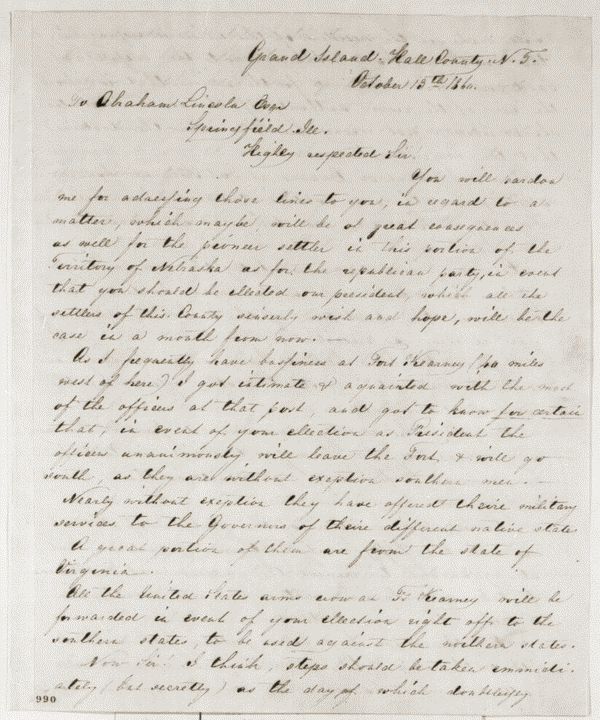 Grand Island, Hall County, N. T.
October 13th 1860.
To Abraham Lincoln Esqr
Springfield Ill.
Highly respected Sir.
You will pardon
me for adressing those lines to you, in regard to a
matter, which maybe will be of great consequences
as well for the pioneer settler in this portion of the
Territory of Nebraska as for the republican party, in event
that you should be ellected our president, which all the
settlers of this County sincerly wish and hope, will be the
case in a month from now.
As I frequently have bussiness at Fort Kearney (40 miles
west of here) I got intimate & aquainted with the most
of the officers at that post, and got to know for certain
that, in event of your ellection as President the
officers unanimously will leave the Fort & will go
south, as they are without exeption southern men. —
Nearly without exeption they have offered theire military
services to the Governors of theire different native state
A great portion of them are from the state of
Virginia.
All the United States arms now at Ft Kearney will be
forwarded in event of your ellection right off to the
southern states, to be used against the northern states.
Now Sir! I think, steps should be taken immidi-
ately (but secretly) as the day of which doubtlessly
990